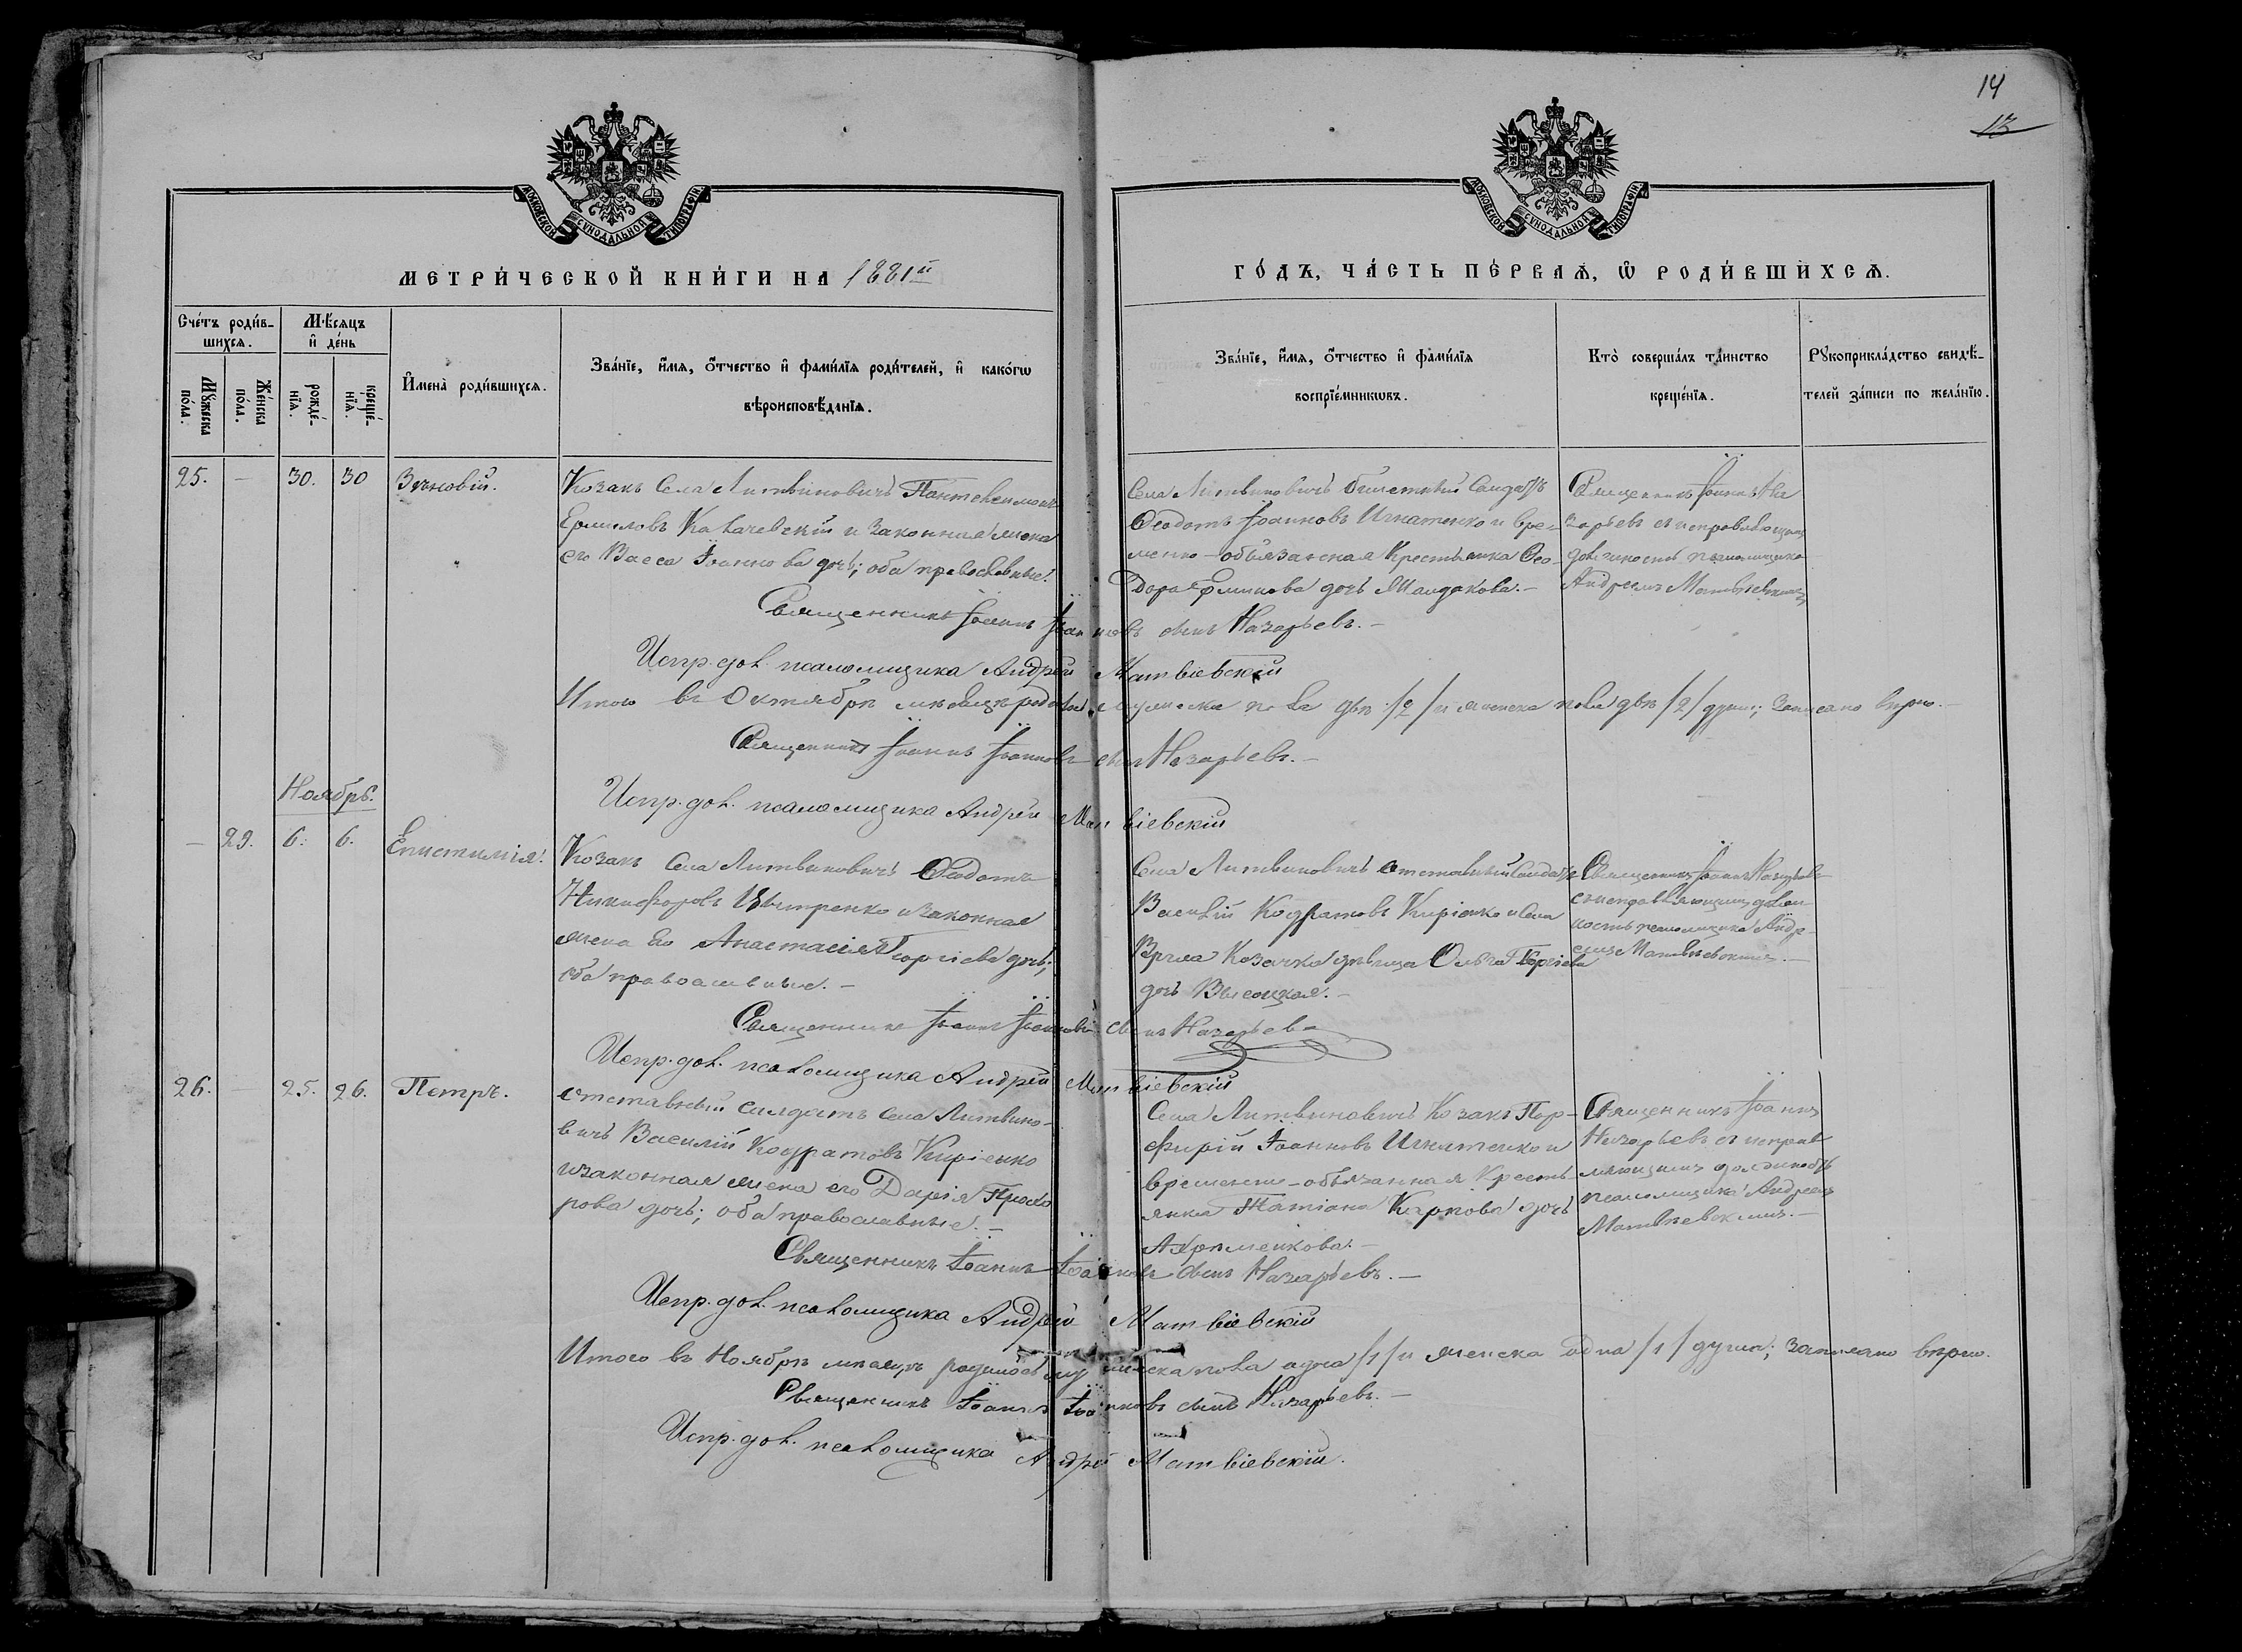 14
13
МОСКОВСКОЙ СѴНОДАЛЬНОЙ ТИПОГРАФІИ
МОСКОВСКОЙ СѴНОДАЛЬНОЙ ТИПОГРАФІИ
МЕТРИ́ЧЕСКОЙ КНИ́ГИ НА 1881й
ГО́ДЪ, ЧА́СТЬ ПЕ́РВАѦ, Ѡ РОДИ́ВШИХСѦ.
Сче́тъ роди́в-
шихсѧ.
Мꙋжеска по́ла.
Же́нска по́ла.
Мѣ́сѧцъ
и҆ де́нь
рожде́-
нїѧ.
креще́-
нїѧ.
И҆мена̀ роди́вшихсѧ.
Зва́нїе, и҆́мѧ, ѻ҆́тчество и҆ фами́лїѧ роди́телей, и҆ како́гѡ
вѣроисповѣ́данїѧ.
Зва́нїе, и҆́мѧ, ѻ҆́тчество и҆ фами́лїѧ
воспрїе́мникѡвъ.
Кто̀ соверша́лъ та́инство
креще́нїѧ.
Рꙋкоприкла́дство свидѣ́-
телей за́писи по жела́нїю.
25. — 30. 30 Зѣновій.
Козакъ Села Литвиновичъ Пантелеимонъ
Ермиловъ Калачевскій и законная жена
его Васса Іоаннова дочь; оба православные.
Села Литвиновичъ билетный Солдатъ
Ѳеодотъ Іоанновъ Игнатенко и вре-
менно-обязанная Крестьянка Ѳео-
дора дочь
Священникъ Іоаннъ На-
зарьевъ съ исправляющимъ
должность псаломщика
Андреемъ Матвѣевскимъ
Священникъ Іоаннъ Іоанновъ сынъ Назарьевъ.—
Испр. дол. псаломщика Андрей Матвіевскій
Итого въ Октябрѣ мѣсяцѣ родилось мужеска пола двѣ /2/ и женска пола двѣ /2/ души; записано вѣрно.—
Священникъ Іоаннъ Іоанновъ сынъ Назарьевъ.—
Испр. дол. псаломщика Андрей Матвіевскій
Ноябрь.
— 22. 6. 6. Епистимія.
Козакъ Села Литвиновичъ Ѳеодотъ
Никифоровъ и законная
жена Его Анастасія Георгіева дочь;
оба православные.—
Села Литвиновичъ отставный Солдатъ
Василій Кодратовъ Кирієнко и Села
Козачка дѣвица Ольга Георгіева
дочь Высоцкая.—
Священникъ Іоаннъ Назарьевъ
съ исправляющимъ долж-
ность псаломщика Андр-
еемъ Матвѣевскимъ.—
Священникъ Іоаннъ Іоанновъ сынъ Назарьевъ
Испр. дол. псаломщика Андрей Матвіевскій
26. — 25. 26. Петръ.
отставный солдатъ Села Литвино-
вичъ Василій Кодратовъ Кирієнко
и законная жена его Дарія Прохо
рова дочь; оба православные.—
Села Литвиновичъ Козакъ Пор-
фирій Іоанновъ Игнатенко и
временно-обязанная Кресть-
янка Татіана Карпова дочь
Ахременкова.—
Священникъ Іоаннъ
Назарьевъ съ исправ-
ляющимъ должность
псаломщика Андреемъ
Матвѣевскимъ.—
Священникъ Іоаннъ Іоанновъ сынъ Назарьевъ.—
Испр. дол. псаломщика Андрей Матвіевскій
Итого въ Ноябрѣ мѣсяцѣ родилось мужеска пола одна /1/ и женска одна /1/ душа; записано вѣрно.
Священникъ Іоаннъ Іоанновъ сынъ Назарьевъ.—
Испр. дол. псаломщика Андрей Матвіевскій.